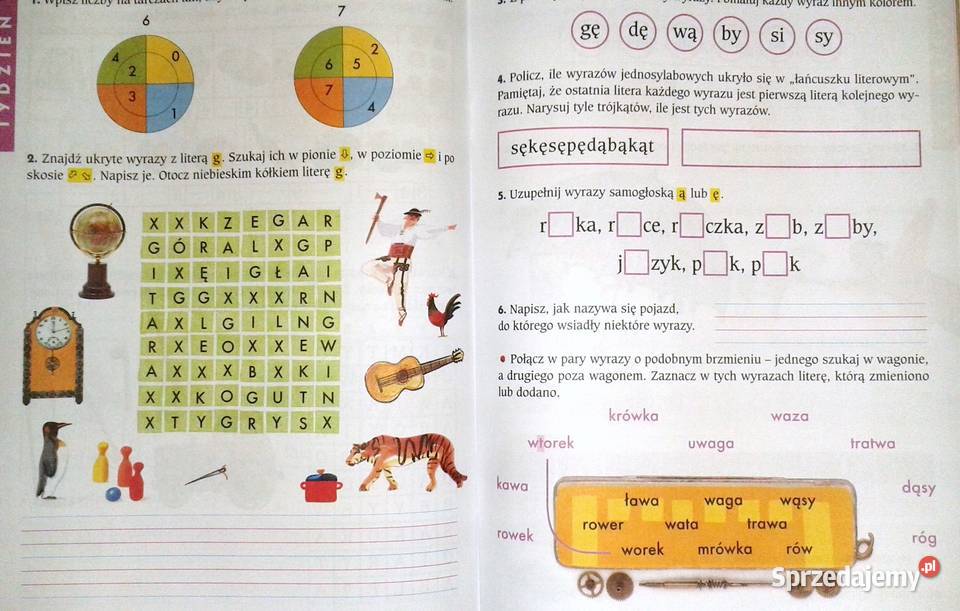 TYDZIEŃ
6
4 0
2
3
1
7
2
6 5
7
4
2. Znajdź ukryte wyrazy z literą g. Szukaj ich w pionie, w poziomie i po
skosie. Napisz je. Otocz niebieskim kółkiem literę g.
X X K Z E G A R
G Ó R A L X G P
I X Ę I G Ł A I
T G G X X X R N
A X L G I L N G
R X E O X X E W
A X X X B X K I
X X K O G U T N
X T Y G R Y S X
wyraz innym kolorem.
gę dę wą by si sy
4. Policz, ile wyrazów jednosylabowych ukryło się w „łańcuszku literowym".
Pamiętaj, że ostatnia litera każdego wyrazu jest pierwszą literą kolejnego wy-
razu. Narysuj tyle trójkątów, ile jest tych wyrazów.
sękęsępędąbąkąt
5. Uzupełnij wyrazy samogłoską ą lub ę.
r□ka, r□ce, r□czka, z□b, z□by,
j□zyk, p□k, p□k
6. Napisz, jak nazywa się pojazd,
do którego wsiadły niektóre wyrazy.
• Połącz w pary wyrazy o podobnym brzmieniu – jednego szukaj w wagonie,
a drugiego poza wagonem. Zaznacz w tych wyrazach literę, którą zmieniono
lub dodano.
krówka waza
wtorek uwaga tratwa
kawa dąsy
ława waga wąsy
rower wata trawa
rowek róg
worek mrówka rów
Sprzedajemy.pl